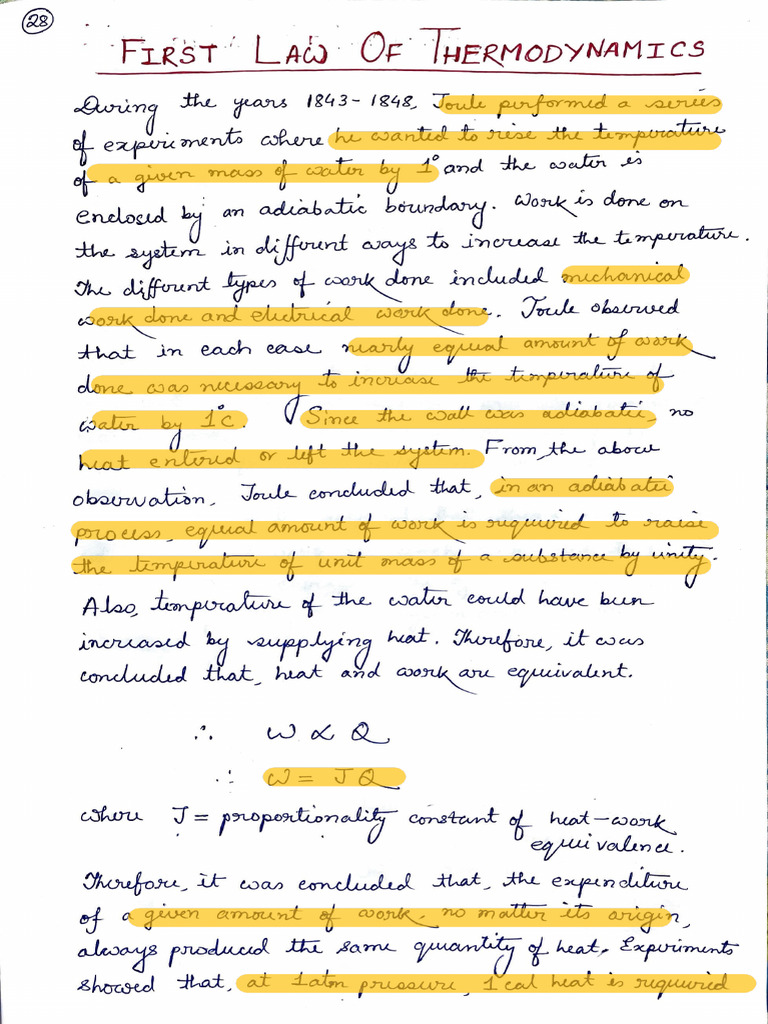 28
FIRST LAW OF THERMODYNAMICS
During the years 1843-1848, Joule performed a series
of experiments where he wanted to rise the temperature
of a given mass of water by 1° and the water is
enclosed by an adiabatic boundary. Work is done on
the system in different ways to increase the temperature.
The different types of work done included mechanical
work done and electrical work done. Joule observed
that in each case nearly equal amount of work
done was necessary to increase the temperature of
water by 1°c. Since the wall was adiabatic, no
heat entered or left the system. From the above
observation, Joule concluded that, in an adiabatic
process, equal amount of work is required to raise
the temperature of unit mass of a substance by unity.
Also, temperature of the water could have been
increased by supplying heat. Therefore, it was
concluded that, heat and work are equivalent.
∴ W ∝ Q
∴ W = JQ
where J = proportionality constant of heat-work
equivalence.
Therefore, it was concluded that, the expenditure
of a given amount of work, no matter its origin,
always produced the same quantity of heat. Experiments
showed that, at 1atm pressure, 1 cal heat is required